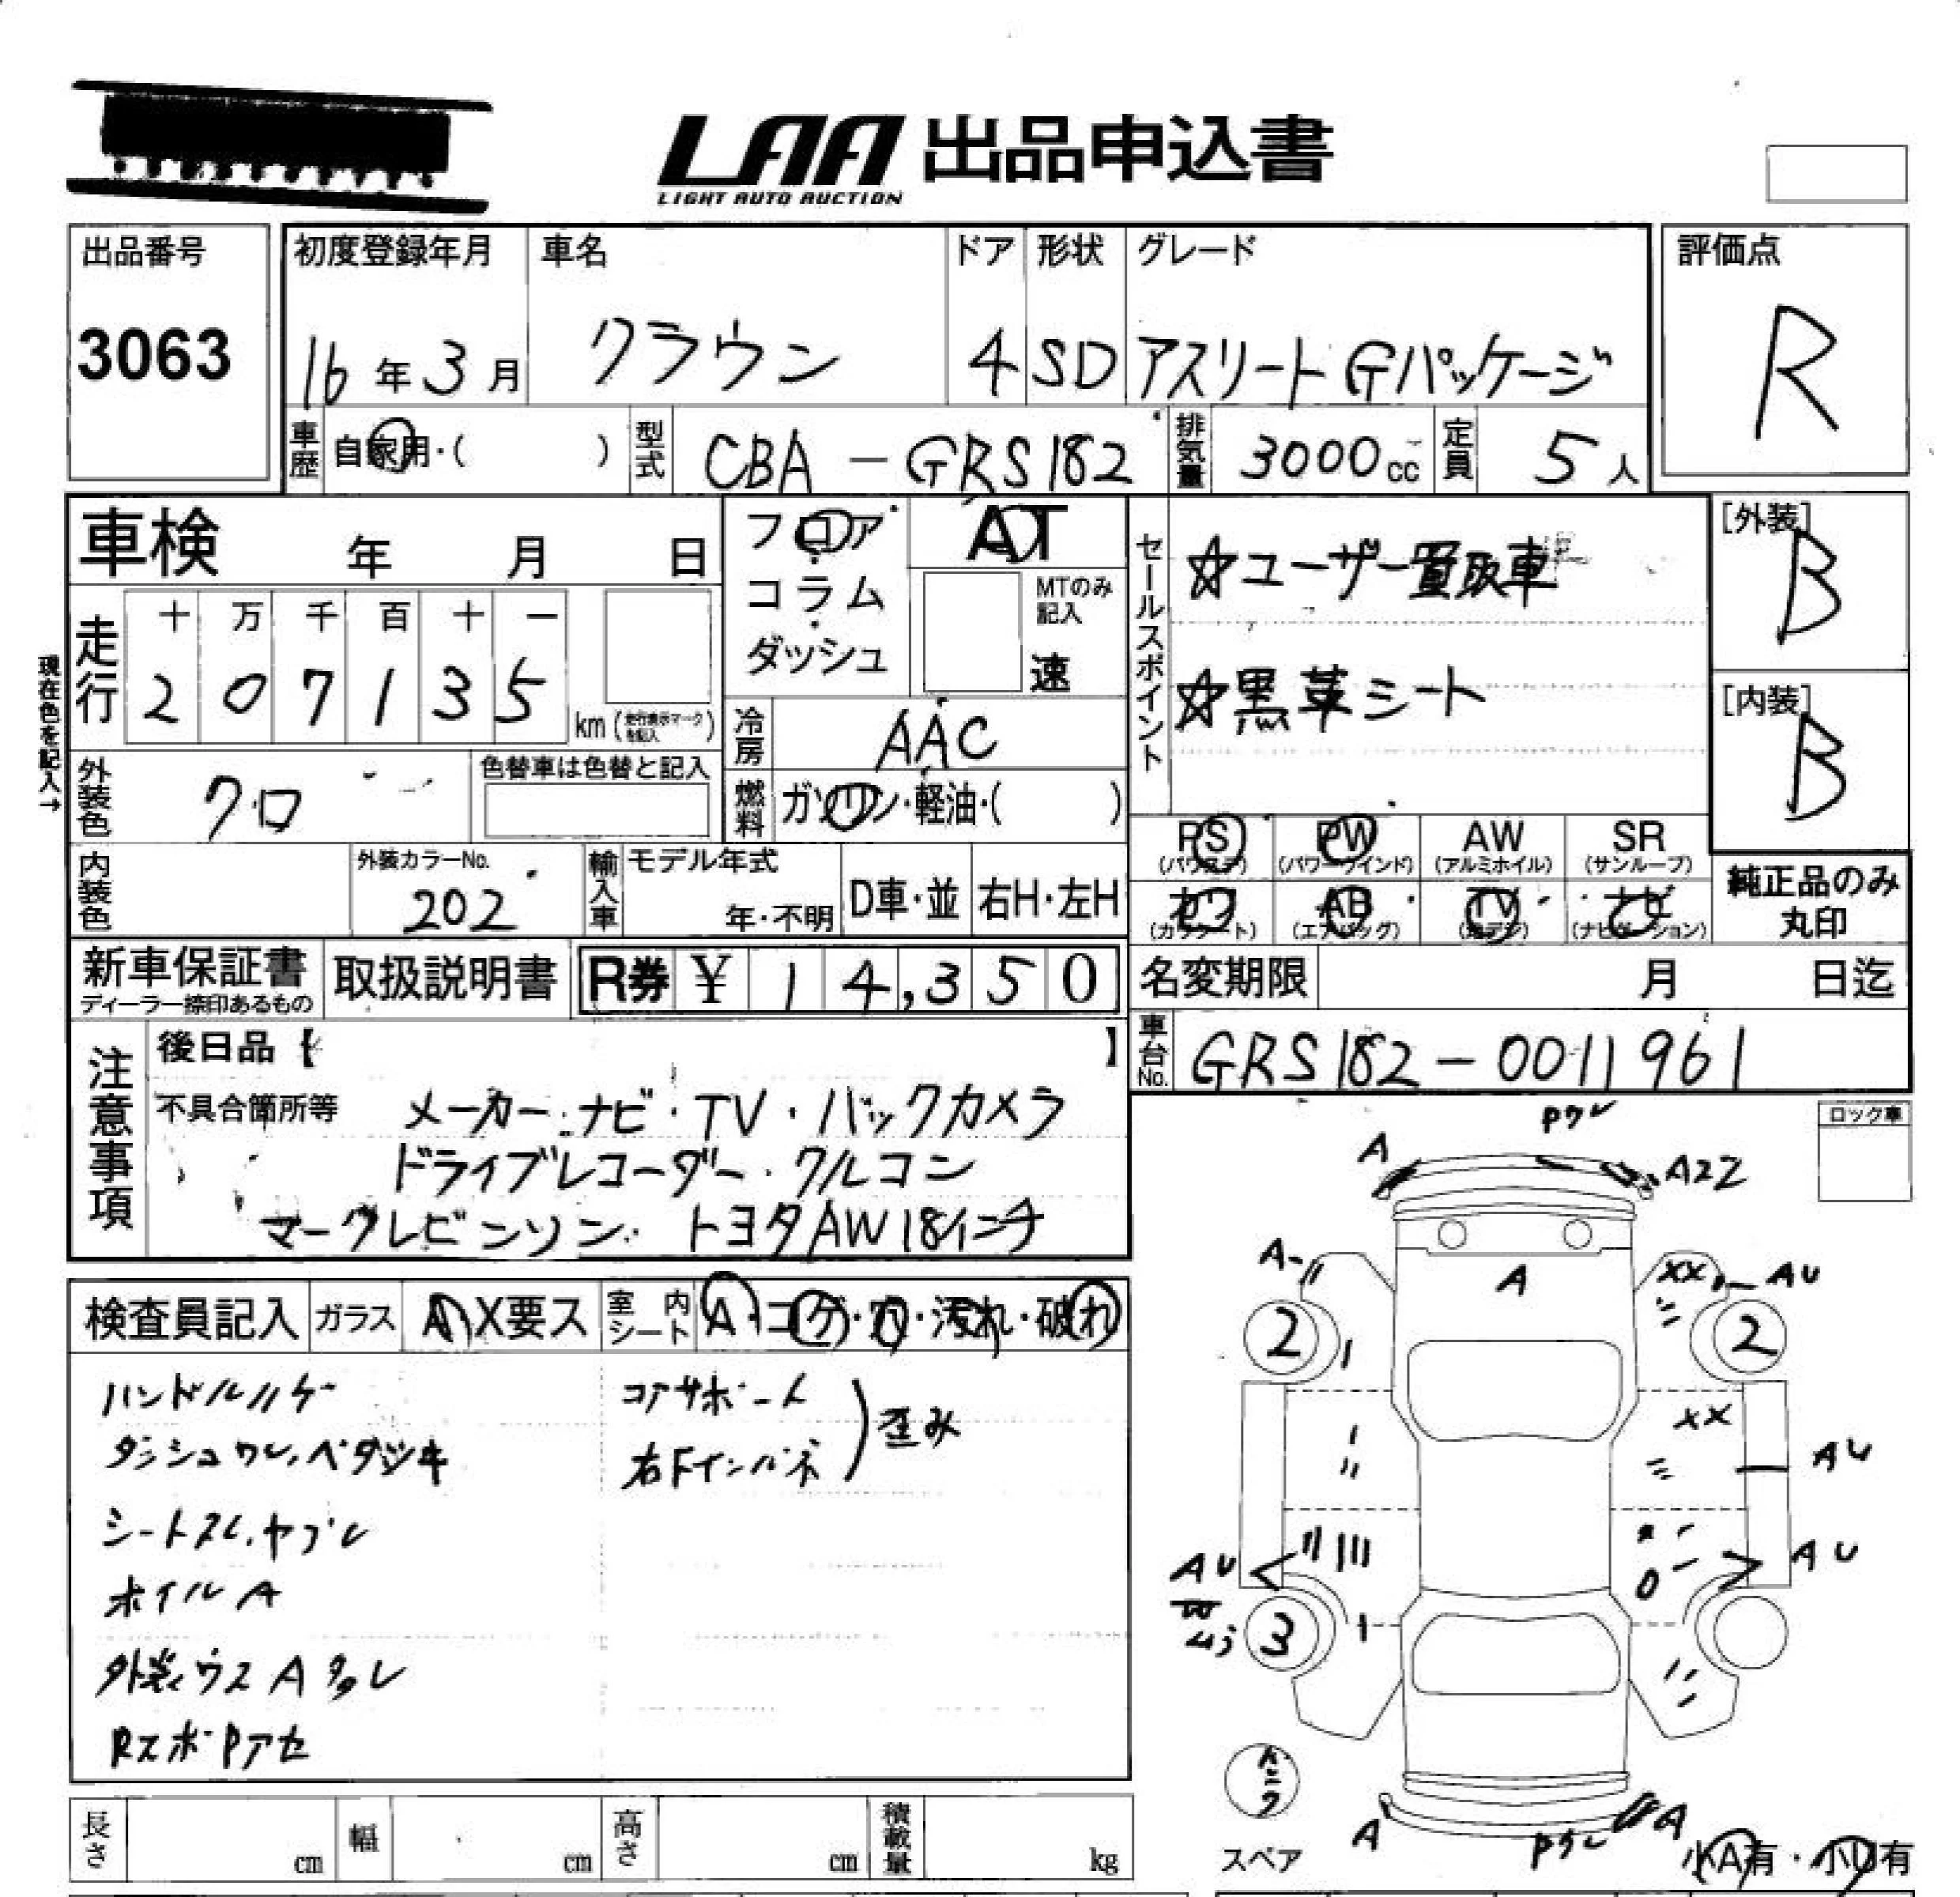 LAA 出品申込書
LIGHT AUTO AUCTION
出品番号
3063
初度登録年月
16年3月
車名
クラウン
ドア
4
形状
SD
グレード
アスリートGパッケージ
評価点
R
車歴
自家用・( )
型式
CBA-GRS182
排気量
3000cc
定員
5人
車検 年 月 日
フロア
コラム
ダッシュ
AT
MTのみ
記入
速
セールスポイント
☆ユーザー買取車
☆黒革シート
[外装]
B
[内装]
B
現在色を記入→
走行
十 万 千 百 十 一
2 0 7 1 3 5
km (走行表示マークを記入)
冷房
AAC
外装色
クロ
色替車は色替と記入
燃料
ガソリン・軽油・( )
PS PW AW SR
(パワステ) (パワーウインド) (アルミホイル) (サンルーフ)
カワ AB TV ナビ
(カワシート) (エアバッグ) (ナビゲーション)
純正品のみ
丸印
内装色
外装カラーNo.
202
輸入車
モデル年式
年・不明
D車・並
右H・左H
新車保証書
ディーラー捺印あるもの
取扱説明書
R券 ¥ 14,350
名変期限 月 日迄
車台No.
GRS182-0011961
注意事項
後日品【 】
不具合箇所等
メーカーナビ・TV・バックカメラ
ドライブレコーダー・クルコン
マークレビンソン・トヨタAW18インチ
ロック車
検査員記入
ガラス
A・X要ス
室内シート
A・コゲ・穴・汚れ・破れ
ハンドルハゲ
ダッシュワレ、ベタツキ
シートスレ、ヤブレ
ホイルA
外装ウスA多レ
RスポPアセ
コアサポート
右Fインパネ
歪み
Pワレ
A
A22
A
AU
A
XX
2
2
XX
AU
AU
AU
3
A
A
スペア
小A有・小U有
長さ cm
幅 cm
高さ cm
積載量 kg